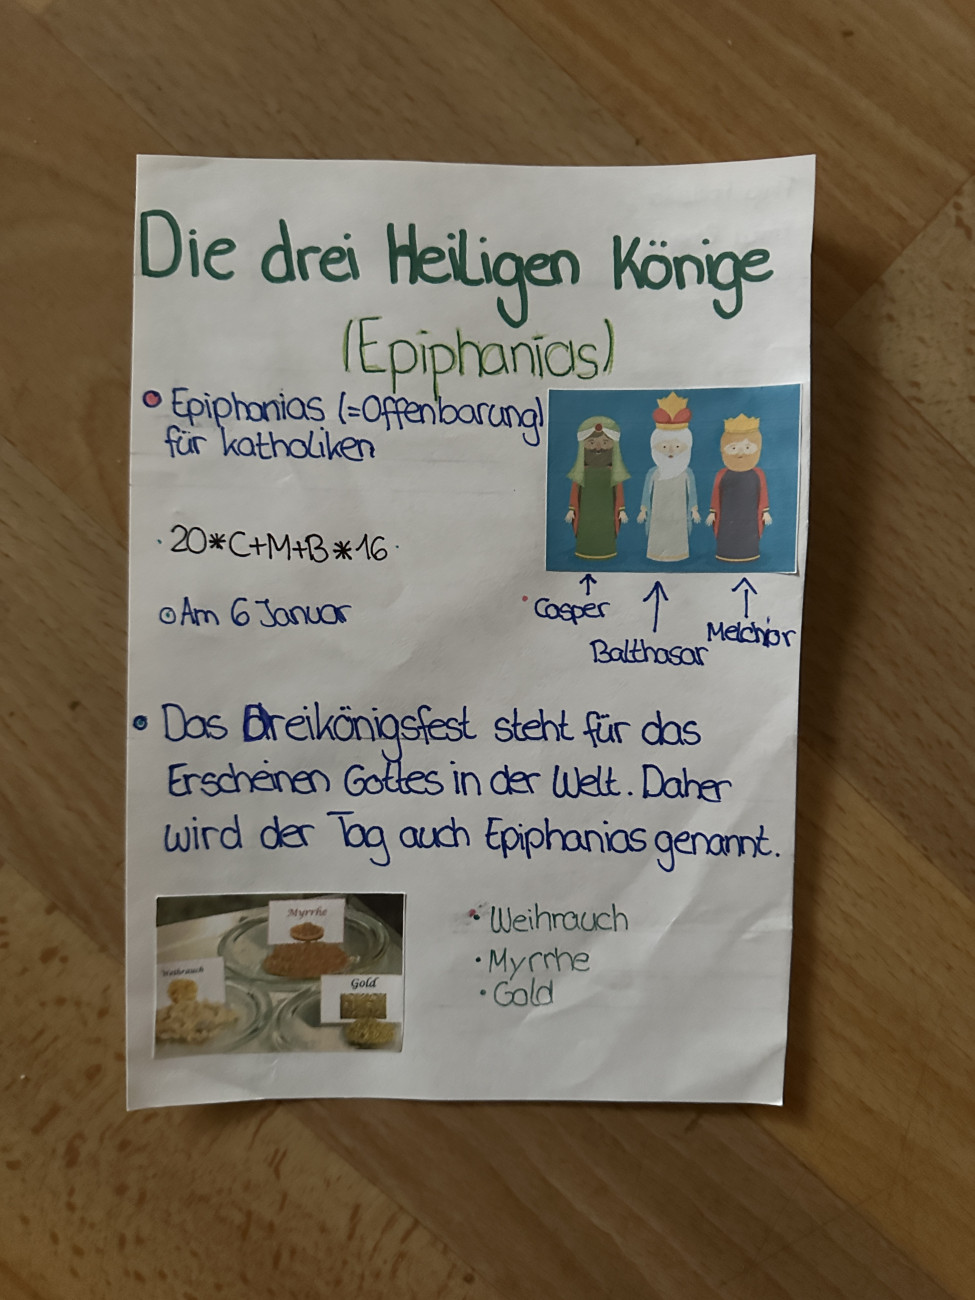 Die drei Heiligen Könige
(Epiphanias)
Epiphanias (=Offenbarung)
für Katholiken
20*C+M+B*16
Am 6 Januar
Casper
Balthasar
Melchior
Das Dreikönigsfest steht für das
Erscheinen Gottes in der Welt. Daher
wird der Tag auch Epiphanias genannt.
Myrrhe
Weihrauch
Gold
Weihrauch
Myrrhe
Gold